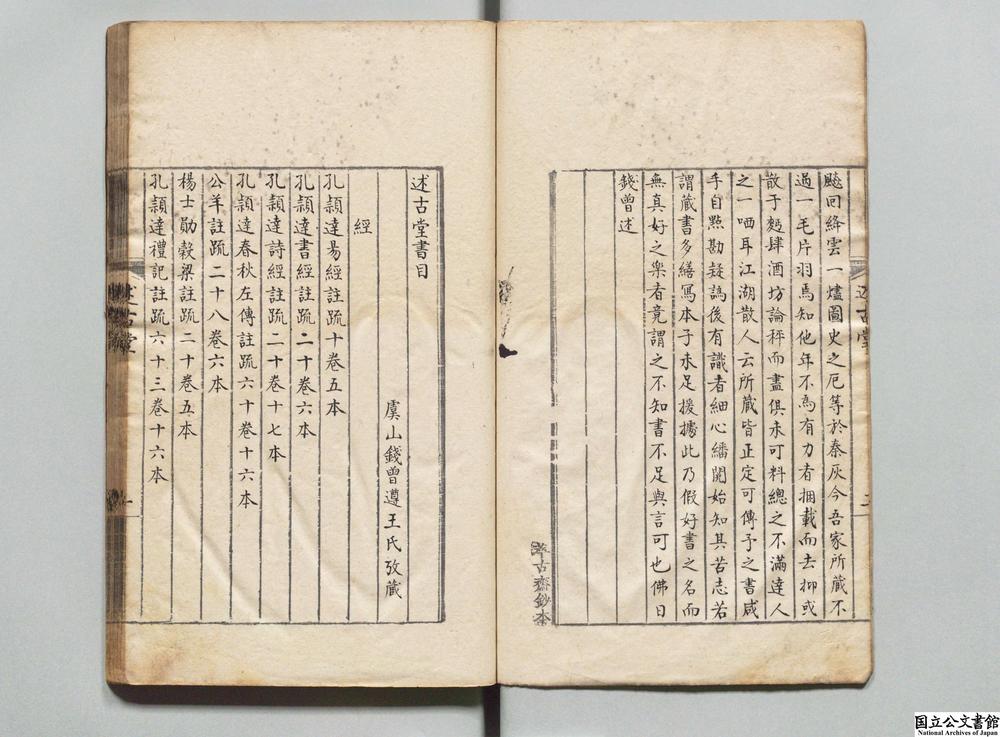 颷回絳雲一爐圖史之厄等於秦灰今吾家所藏不
過一毛片羽焉知他年不為有力者捆載而去抑或
散于麫肆酒坊論秤而盡俱未可料總之不滿達人
之一哂耳江湖散人云所藏皆正定可傳予之書咸
手自㸃勘疑譌後有識者細心繙閱始知其苦志若
謂藏書多繕寫本子未足援據此乃假好書之名而
無真好之樂者竟謂之不知書不足與言可也佛日
錢曾述
述古堂
二
古齋鈔本
述古堂書目
虞山錢曾遵王氏攷藏
經
孔頴達易經註疏十卷五本
孔頴達書經註疏二十卷六本
孔頴達詩經註疏二十卷十七本
孔頴達春秋左傳註疏六十卷十六本
公羊註疏二十八卷六本
楊士勛糓梁註疏二十卷五本
孔頴達禮記註疏六十三卷十六本
述古堂
一
国立公文書館
National Archives of Japan